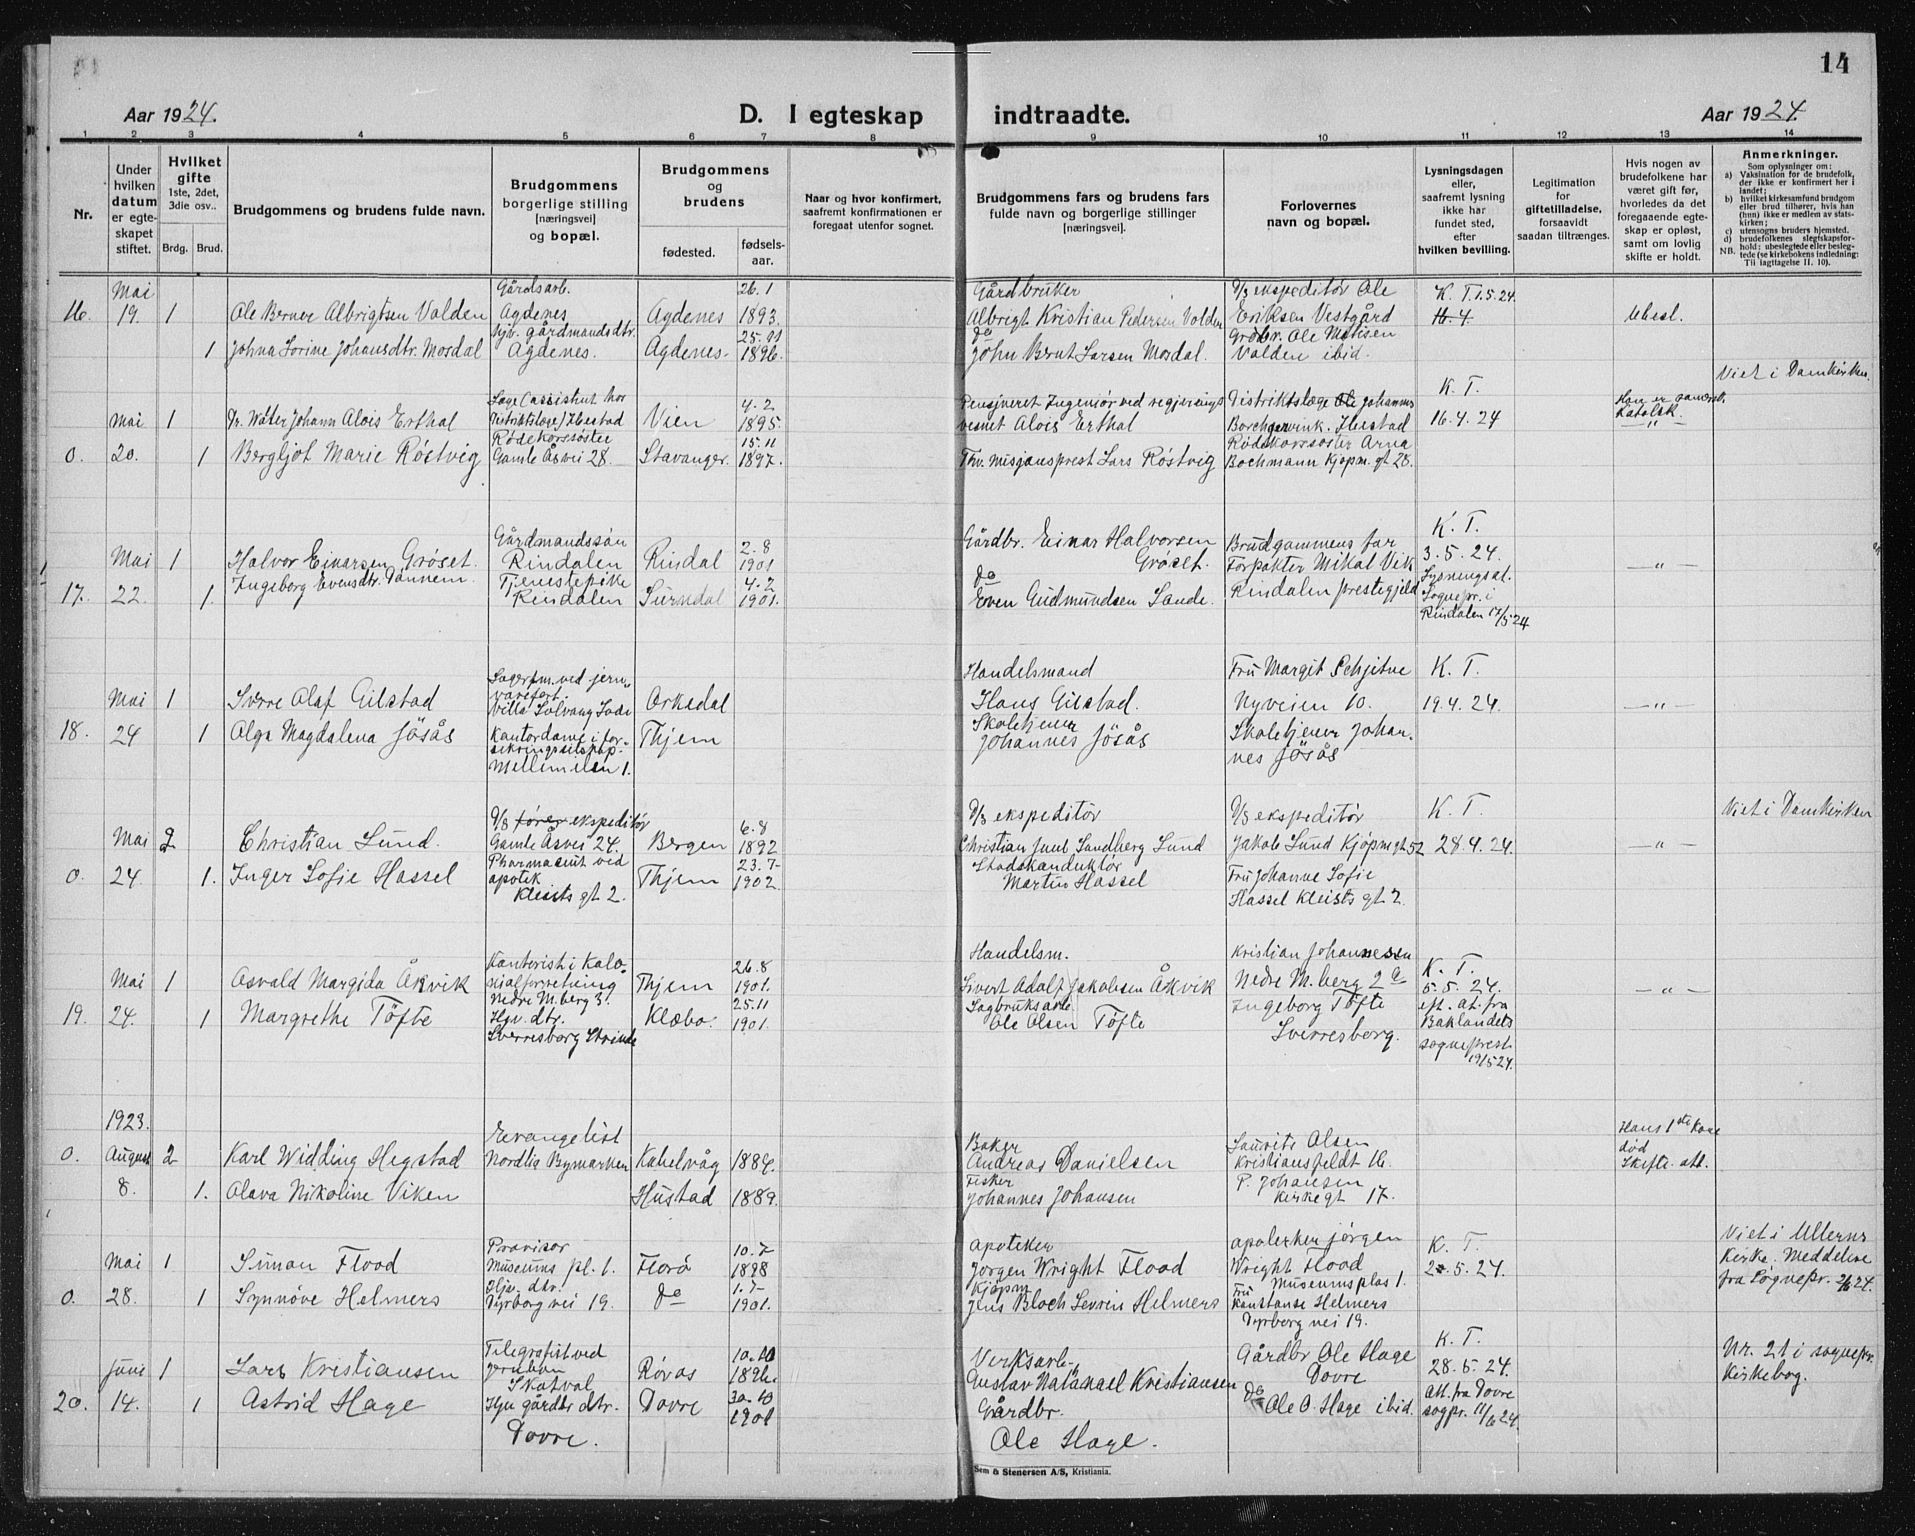 14
Aar 1924.
D. I egteskap indtraadte.
Aar 1924.
1 2 3 4 5 6 7 8 9 10 11 12 13 14
Nr.
Under hvilken datum er egteskapet stiftet.
Hvilket gifte
1ste, 2det, 3die osv..
Brdg. Brud.
Brudgommens og brudens fulde navn.
Brudgommens borgerlige stilling [næringsvei] og bopæl.
Brudgommens og brudens
fødested.
fødselsaar.
Naar og hvor konfirmert, saafremt konfirmationen er foregaat utenfor sognet.
Brudgommens fars og brudens fars fulde navn og borgerlige stillinger [næringsvei].
Forlovernes navn og bopæl.
Lysningsdagen eller, saafremt lysning ikke har fundet sted, efter hvilken bevilling.
Legitimation for giftetilladelse, forsaavidt saadan tiltrænges.
Hvis nogen av brudefolkene har været gift før, hvorledes da det foregaaende egteskap er opløst, samt om lovlig skifte er holdt.
Anmerkninger.
Som oplysninger om:
a) Vaksination for de brudefolk, der ikke er konfirmert her i landet;
b) hvilket kirkesamfund brudgom eller brud tilhører, hvis han (hun) ikke er medlem av statskirken;
c) utensogns bruders hjemsted.
d) brudefolkenes slegtskapsforhold: ubeslegtede eller beslegtede (se kirkebokens indledning:
NB. Til iagttagelse II. 10).
16. Mai 19. 1 Ole Berner Albrigtsen Valden
Gårdsarb. Agdenes
Agdenes 26.1 1893.
Gårdbruker Albrigt Kristian Pedersen Valden
D/S ekspeditör Ole Eriksen Vestgård
K. T. 1.5.24.
Ubesl.
1 Johna Sorine Johansdtr. Mosdal
hjv. gårdmandsdtr. Agdenes.
Agdenes 1896.
do John Bernt Larsen Mosdal.
Grdbr. Ole Matisen Valden ibid.
Viet i Domkirken.
0. Mai 20. 1 Dr. Walter Johann Alois Erthal
Distriktslæge Ibestad
Vien 4.2 1895.
Pensjoneret Ingeniör ved regjerings vesnet Alois Erthal
Distriktslæge Johannes Borchgrevink. Ibestad
K. T. 16.4.24
Han er romersk katolsk.
1 Bergljot Marie Röstvig
Rödekorssöster Gamle Åsvei 28.
Stavanger. 15.11 1897.
Fhv. misjonsprest Lars Röstvig
Rödekorssöster Arna Bochmann Kjöpm. gt 28.
17. Mai 22. 1 Halvor Einarsen Gröset.
Gårdmandssön Rindalen
Rindal 2.8 1901
Gårdbr. Einar Halvorsen Gröset.
Brudgommens far
K. T. 3.5.24.
1. Ingeborg Evensdtr. Dönnem
Tjenestepike Rindalen
Surndal 4.2 1901.
do Even Gudmundsen Sande.
Forpakter Mikal Vik Rindalen prestegjeld
Lysningsat. Sognepr. i Rindalen 17/5 24
18. Mai 24 1 Sverre Olaf Gilstad
Lagerfm. ved jernvareforr. Villa Solvang Lade
Orkedal
Handelsmand Hans Gilstad.
Fru Margit Schjetne Nyveien 10.
K. T. 19.4.24.
1 Olga Magdalena Jösås
Kontordame i forsikringsselskap. Mellemilen 1.
Thjem
Skoletjener Johannes Jösås
Skoletjener Johannes Jösås
0. Mai 24. 2 Christian Lund.
D/S ekspeditör Gamle Åsvei 24.
Bergen 6.8 1892
D/S ekspeditör Christian Juul Sandberg Lund
D/S ekspeditör Jakob Lund Kjöpm gt 52
K. T. 28.4.24.
Viet i Domkirken
1. Inger Sofie Hassel
Pharmaceut ved apotek Kleists gt 2.
Thjem 23.7 1902.
Stadskonduktör Martin Hassel
Fru Johanne Sofie Hassel Kleists gt 2.
19. Mai 24. 1 Osvald Margido Åkvik
Kontorist i kolonialforretning Nedre M.berg 3.
Thjem 26.8 1901.
Handelsm. Sivert Adolf Jakobsen Åkvik
Kristian Johannessen Nedre M.berg 2 a
K. T. 5.5.24.
1 Margrethe Töfte
Hjv. dtr. Sverresborg Strinda
Klæbo. 25.11 1901.
Sagbruksarb. Ole Olsen Töfte
Ingeborg Töfte Sverresborg.
eft. at. fra Baklandets sogneprest 19/5 24.
0. 1923. August 8. 2 Karl Widding Hegstad
Evangelist Nordlis Bymarken
Kabelvåg 1884.
Baker Andreas Danielsen
Laurits Olsen Kristiansfeldt 16.
Hans 1ste kone död Skifte. att.
1. Olava Nikoline Viken
Hustad 1889.
Fisker Johannes Johansen
P. Johansen Kirkegt 17.
0. Mai 28. 1 Simon Flood
Provisor Museums pl. 1.
Florö 10.7 1898
Apoteker Jörgen Wright Flood
Apoteker Jörgen Wright Flood Museumsplas 1.
K. T. 2.5.24.
Viet i Ullerns Kirke. Meddelelse fra Sognepr. 2/6 24.
1 Synnöve Helmers
Hjv. dtr. Dyrborg vei 19.
do 1.7 1901.
Kjöpm Jens Bloch Severin Helmers
Fru Konstanse Helmers Dyrborg vei 19.
20. Juni 14. 1 Lars Kristiansen
Telegrafist ved jernban Skatval
Röros 10.10 1896.
Verksarb. Gustav Natanael Kristiansen
Gårdbr Ole Hage Dovre
K. T. 28.5.24.
Nr. 21 i sognepr. Kirkebog.
1 Astrid Hage
Hjv gårdbr dtr. Dovre.
Dovre 30.10 1901
Gårdbr. Ole Hage.
do Ole O. Hage ibid.
att. fra Dovre sogpr. 11/6 24.
Sem & Stenersen A/S, Kristiania.